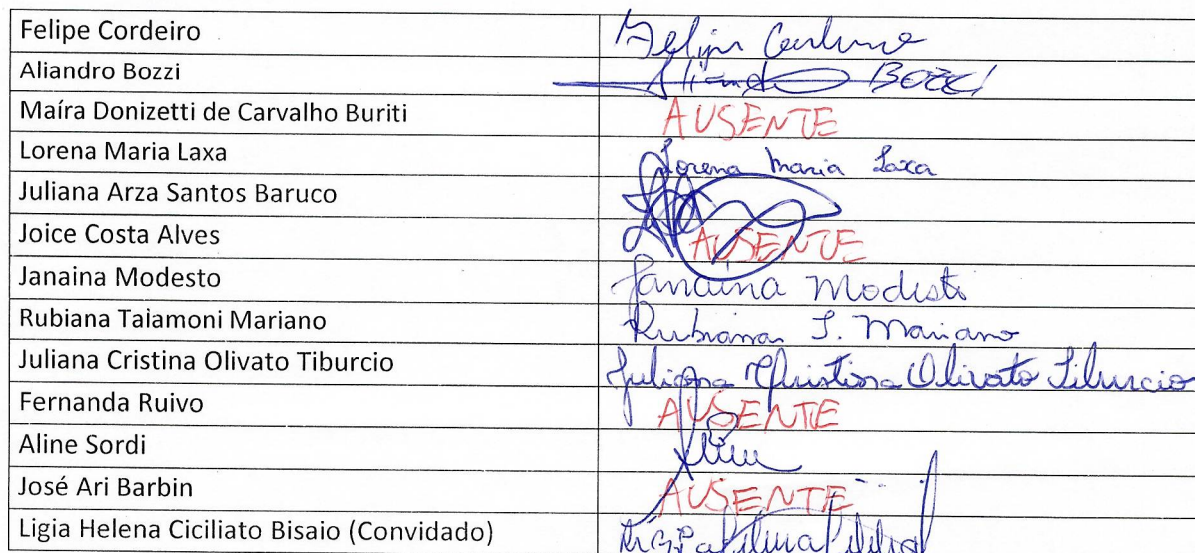 Felipe Cordeiro Felipe Cordeiro
Aliandro Bozzi Aliandro BOZZI
Maíra Donizetti de Carvalho Buriti AUSENTE
Lorena Maria Laxa Lorena Maria Laxa
Juliana Arza Santos Baruco
Joice Costa Alves AUSENTE
Janaina Modesto Janaina Modesto
Rubiana Taiamoni Mariano Rubiana T. Mariano
Juliana Cristina Olivato Tiburcio Juliana Christina Olivato Tiburcio
Fernanda Ruivo AUSENTE
Aline Sordi Aline
José Ari Barbin AUSENTE
Ligia Helena Ciciliato Bisaio (Convidado)